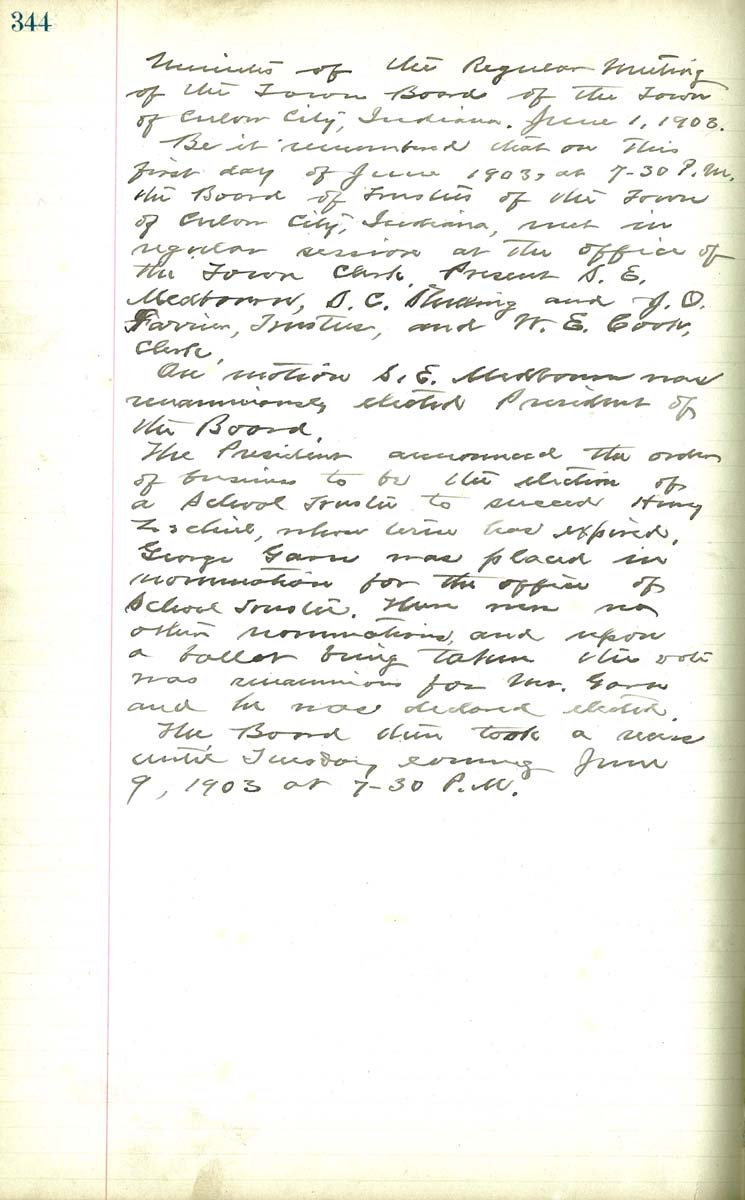 344
Minutes of the Regular Meeting
of the Town Board of the Town
of Culver City, Indiana. June 1, 1903.
Be it remembered that on this
first day of June 1903, at 7-30 P.M.
the Board of Trustees of the Town
of Culver City, Indiana, met in
regular session at the office of
the Town Clerk. Present S. E.
Medbourn, D. C. and J. O.
Farrier, Trustees, and W. E. Cook,
Clerk.
On motion S. E. Medbourn was
unanimously elected President of
the Board.
The President announced the order
of business to be the election of
a School Trustee to succeed Henry
whose term has expired.
George Garn was placed in
nomination for the office of
School Trustee. There were no
other nominations, and upon
a ballot being taken the vote
was unanimous for Mr. Garn
and he was declared elected.
The Board then took a recess
until Tuesday evening June
9, 1903 at 7-30 P.M.